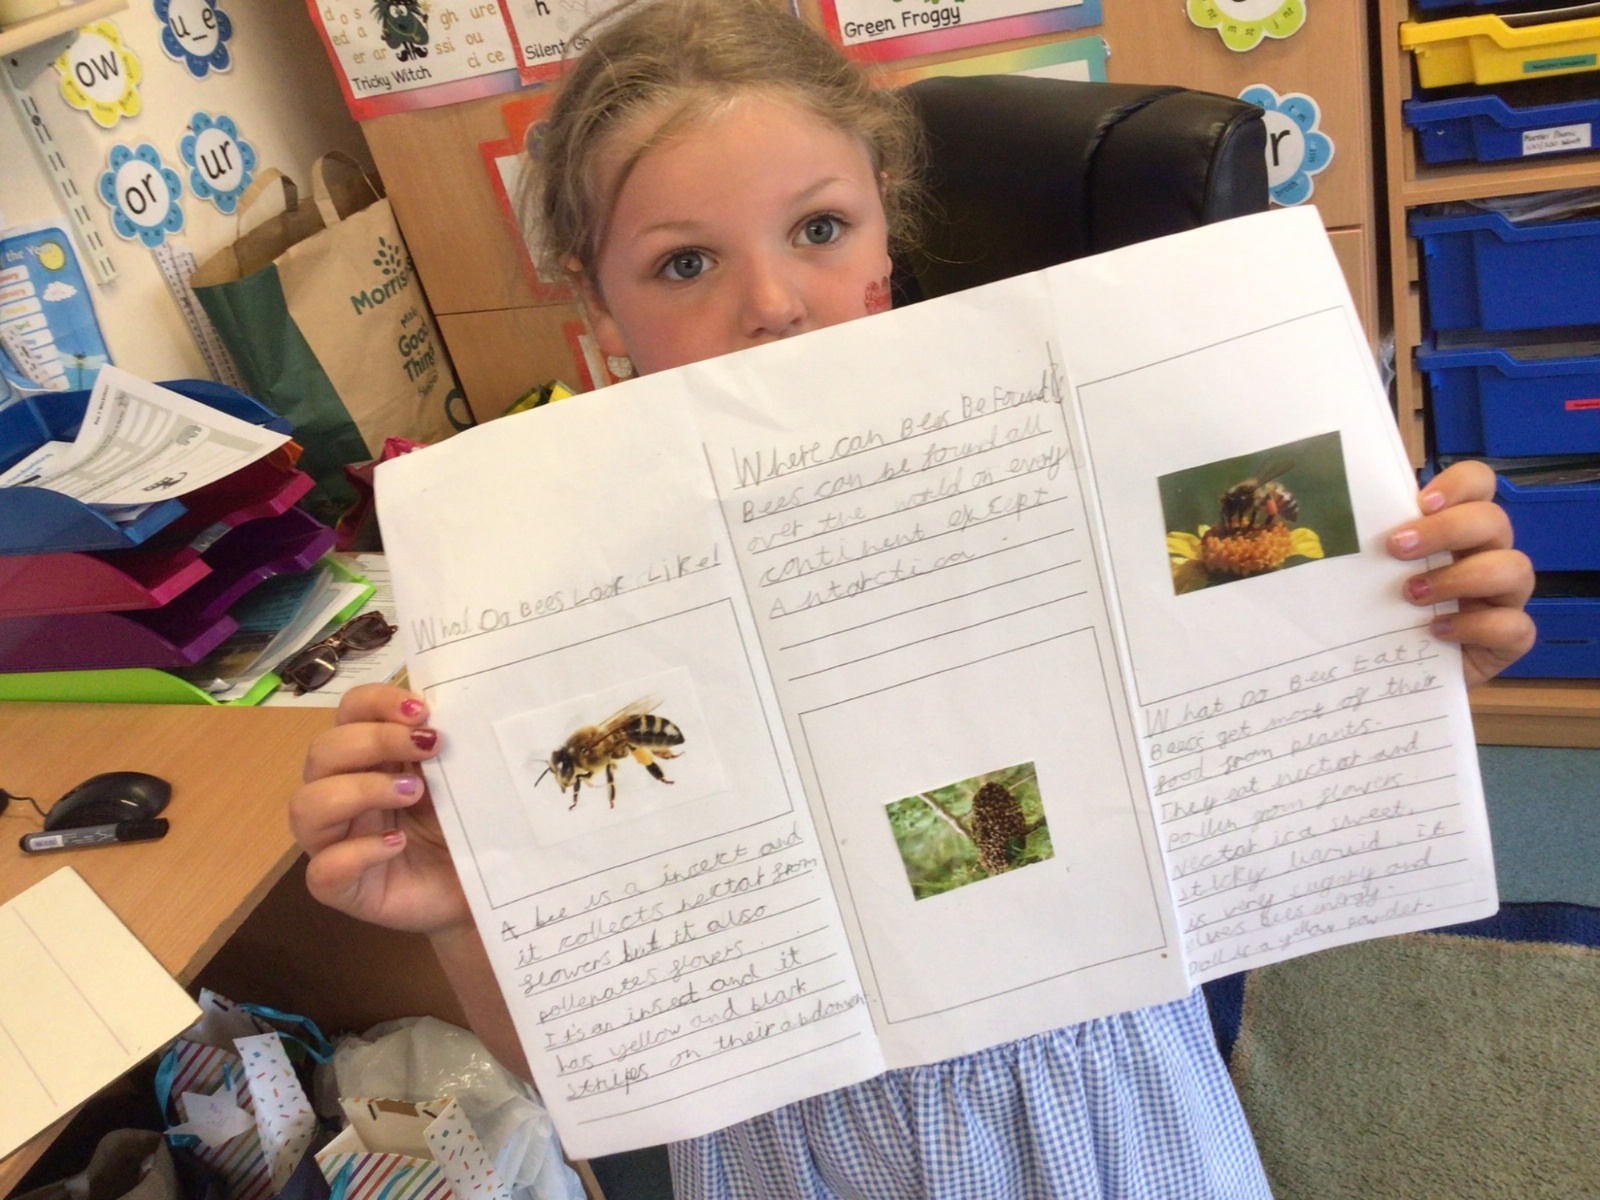 ow
u_e
or
ur
d o s
ed a
er ar
gh ure
ssi ou
ci ce
Tricky Witch
h
Silent Gh
Green Froggy
r
Morris
Make
Good
Thing
What Do Bees Look Like!
A bee is a insect and
it collects nectar from
flowers but it also
pollenates flovers.
It's an insect and it
has yellow and black
stripes on their abdomen
Where can Bees Be Found?
Bees can be found all
over the world on every
continent except
Antarctica.
What Do Bees Eat?
Bees get most of their
food from plants.
They eat nectar and
pollen from flowers.
Nectar is a sweet,
sticky liquid. It
is very sugary and
gives Bees energy.
is a yellow powder.